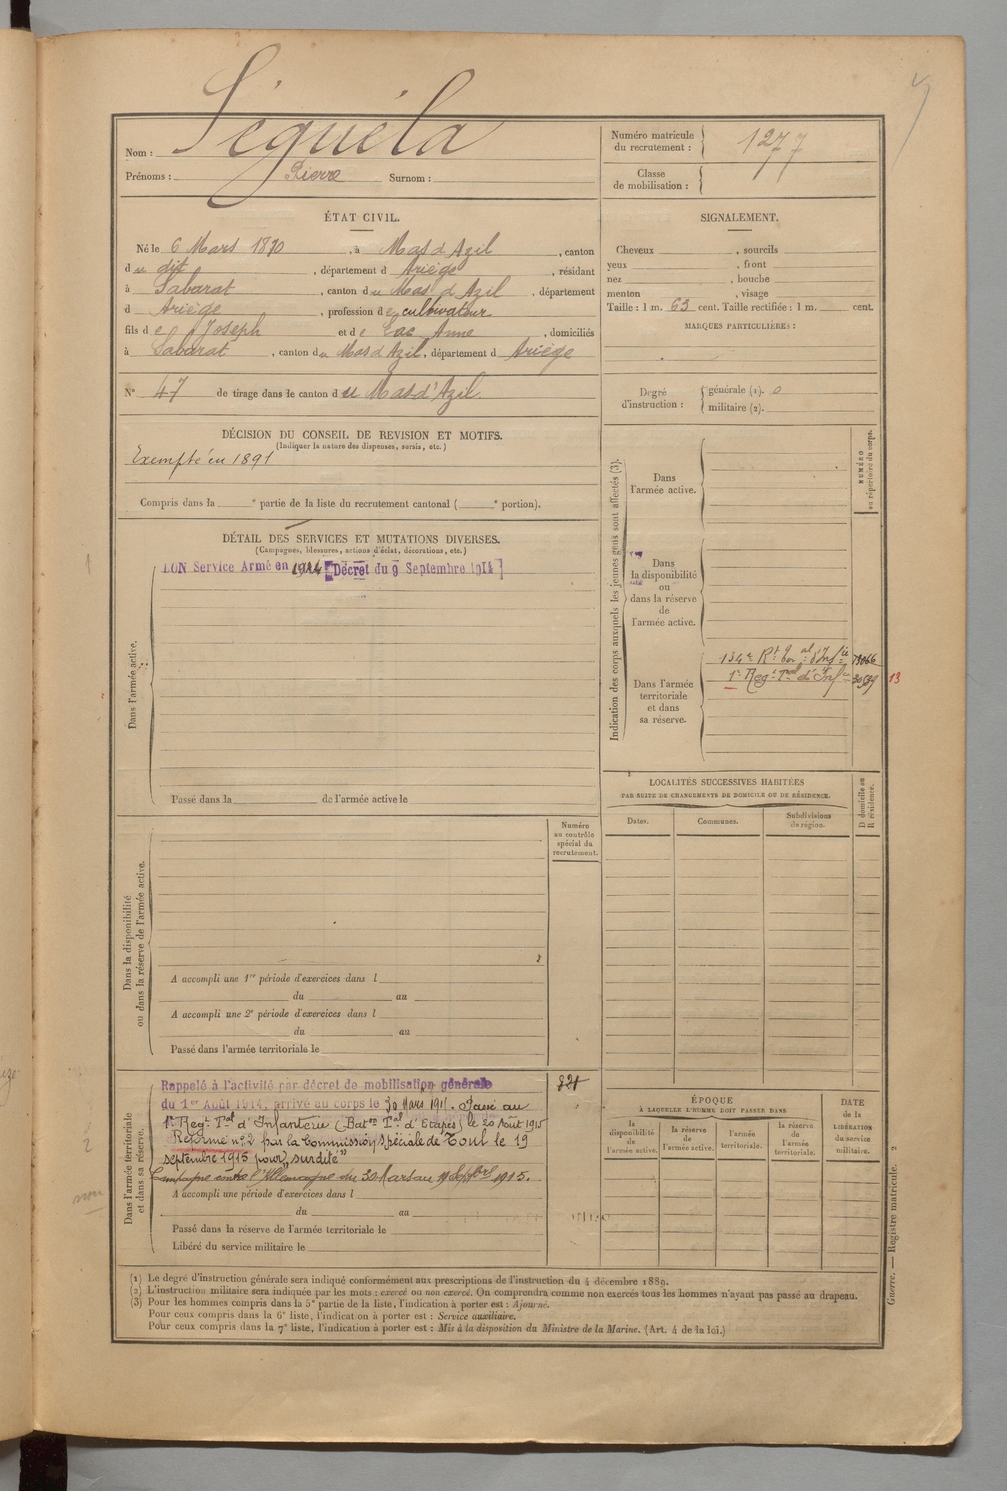 Nom : Séguéla
Prénoms : Pierre Surnom :
Numéro matricule du recrutement : 1277
Classe de mobilisation :
ÉTAT CIVIL.
Né le 6 Mars 1870, à Mas d'Azil, canton
du dit, département d Ariège, résidant
à Sabarat, canton du Mas d'Azil, département
d Ariège, profession de cultivateur
fils de Joseph et de Lac Anne, domiciliés
à Sabarat, canton du Mas d'Azil, département d Ariège
N° 47 de tirage dans le canton du Mas d'Azil.
SIGNALEMENT.
Cheveux , sourcils
yeux , front
nez , bouche
menton , visage
Taille : 1 m. 63 cent. Taille rectifiée : 1 m. cent.
MARQUES PARTICULIÈRES :
Degré d'instruction : générale (1). 0
militaire (2).
DÉCISION DU CONSEIL DE REVISION ET MOTIFS.
(Indiquer la nature des dispenses, sursis, etc.)
Exempté en 1891
Compris dans la e partie de la liste du recrutement cantonal ( e portion).
DÉTAIL DES SERVICES ET MUTATIONS DIVERSES.
(Campagnes, blessures, actions d'éclat, décorations, etc.)
Dans l'armée active.
BON Service Armé en 1914 [Décret du 9 Septembre 1914]
Passé dans la de l'armée active le
Indication des corps auxquels les jeunes gens sont affectés (3).
NUMÉRO au répertoire du corps.
Dans l'armée active.
Dans la disponibilité ou dans la réserve de l'armée active.
Dans l'armée territoriale et dans sa réserve.
134e Rt ter al d'Inf ie
1er Reg t T al d'Inf ie 13
LOCALITÉS SUCCESSIVES HABITÉES
PAR SUITE DE CHANGEMENTS DE DOMICILE OU DE RÉSIDENCE.
D domicile ou R résidence.
Dates. Communes. Subdivisions de région.
Dans la disponibilité ou dans la réserve de l'armée active.
Numéro au contrôle spécial du recrutement.
A accompli une 1re période d'exercices dans l
du au
A accompli une 2e période d'exercices dans l
du au
Passé dans l'armée territoriale le
Dans l'armée territoriale et dans sa réserve.
Rappelé à l'activité par décret de mobilisation générale
du 1er Août 1914, arrivé au corps le 30 Mars 1915. Passé au
1er Reg t T al d'Infanterie (Bat on T al d'Etapes) le 20 Août 1915
Réformé n° 2 par la Commission spéciale de Toul le 19
septembre 1915 pour "surdité"
Campagne contre l'Allemagne du 30 Mars au 19 Septbre 1915.
A accompli une période d'exercices dans l
du au
Passé dans la réserve de l'armée territoriale le
Libéré du service militaire le
ÉPOQUE
À LAQUELLE L'HOMME DOIT PASSER DANS
la disponibilité de l'armée active.
la réserve de l'armée active.
l'armée territoriale.
la réserve de l'armée territoriale.
DATE de la LIBÉRATION du service militaire.
(1) Le degré d'instruction générale sera indiqué conformément aux prescriptions de l'instruction du 4 décembre 1889.
(2) L'instruction militaire sera indiquée par les mots : exercé ou non exercé. On comprendra comme non exercés tous les hommes n'ayant pas passé au drapeau.
(3) Pour les hommes compris dans la 5e partie de la liste, l'indication à porter est : Ajourné.
Pour ceux compris dans la 6e liste, l'indication à porter est : Service auxiliaire.
Pour ceux compris dans la 7e liste, l'indication à porter est : Mis à la disposition du Ministre de la Marine. (Art. 4 de la loi.)
Guerre. — Registre matricule. 2